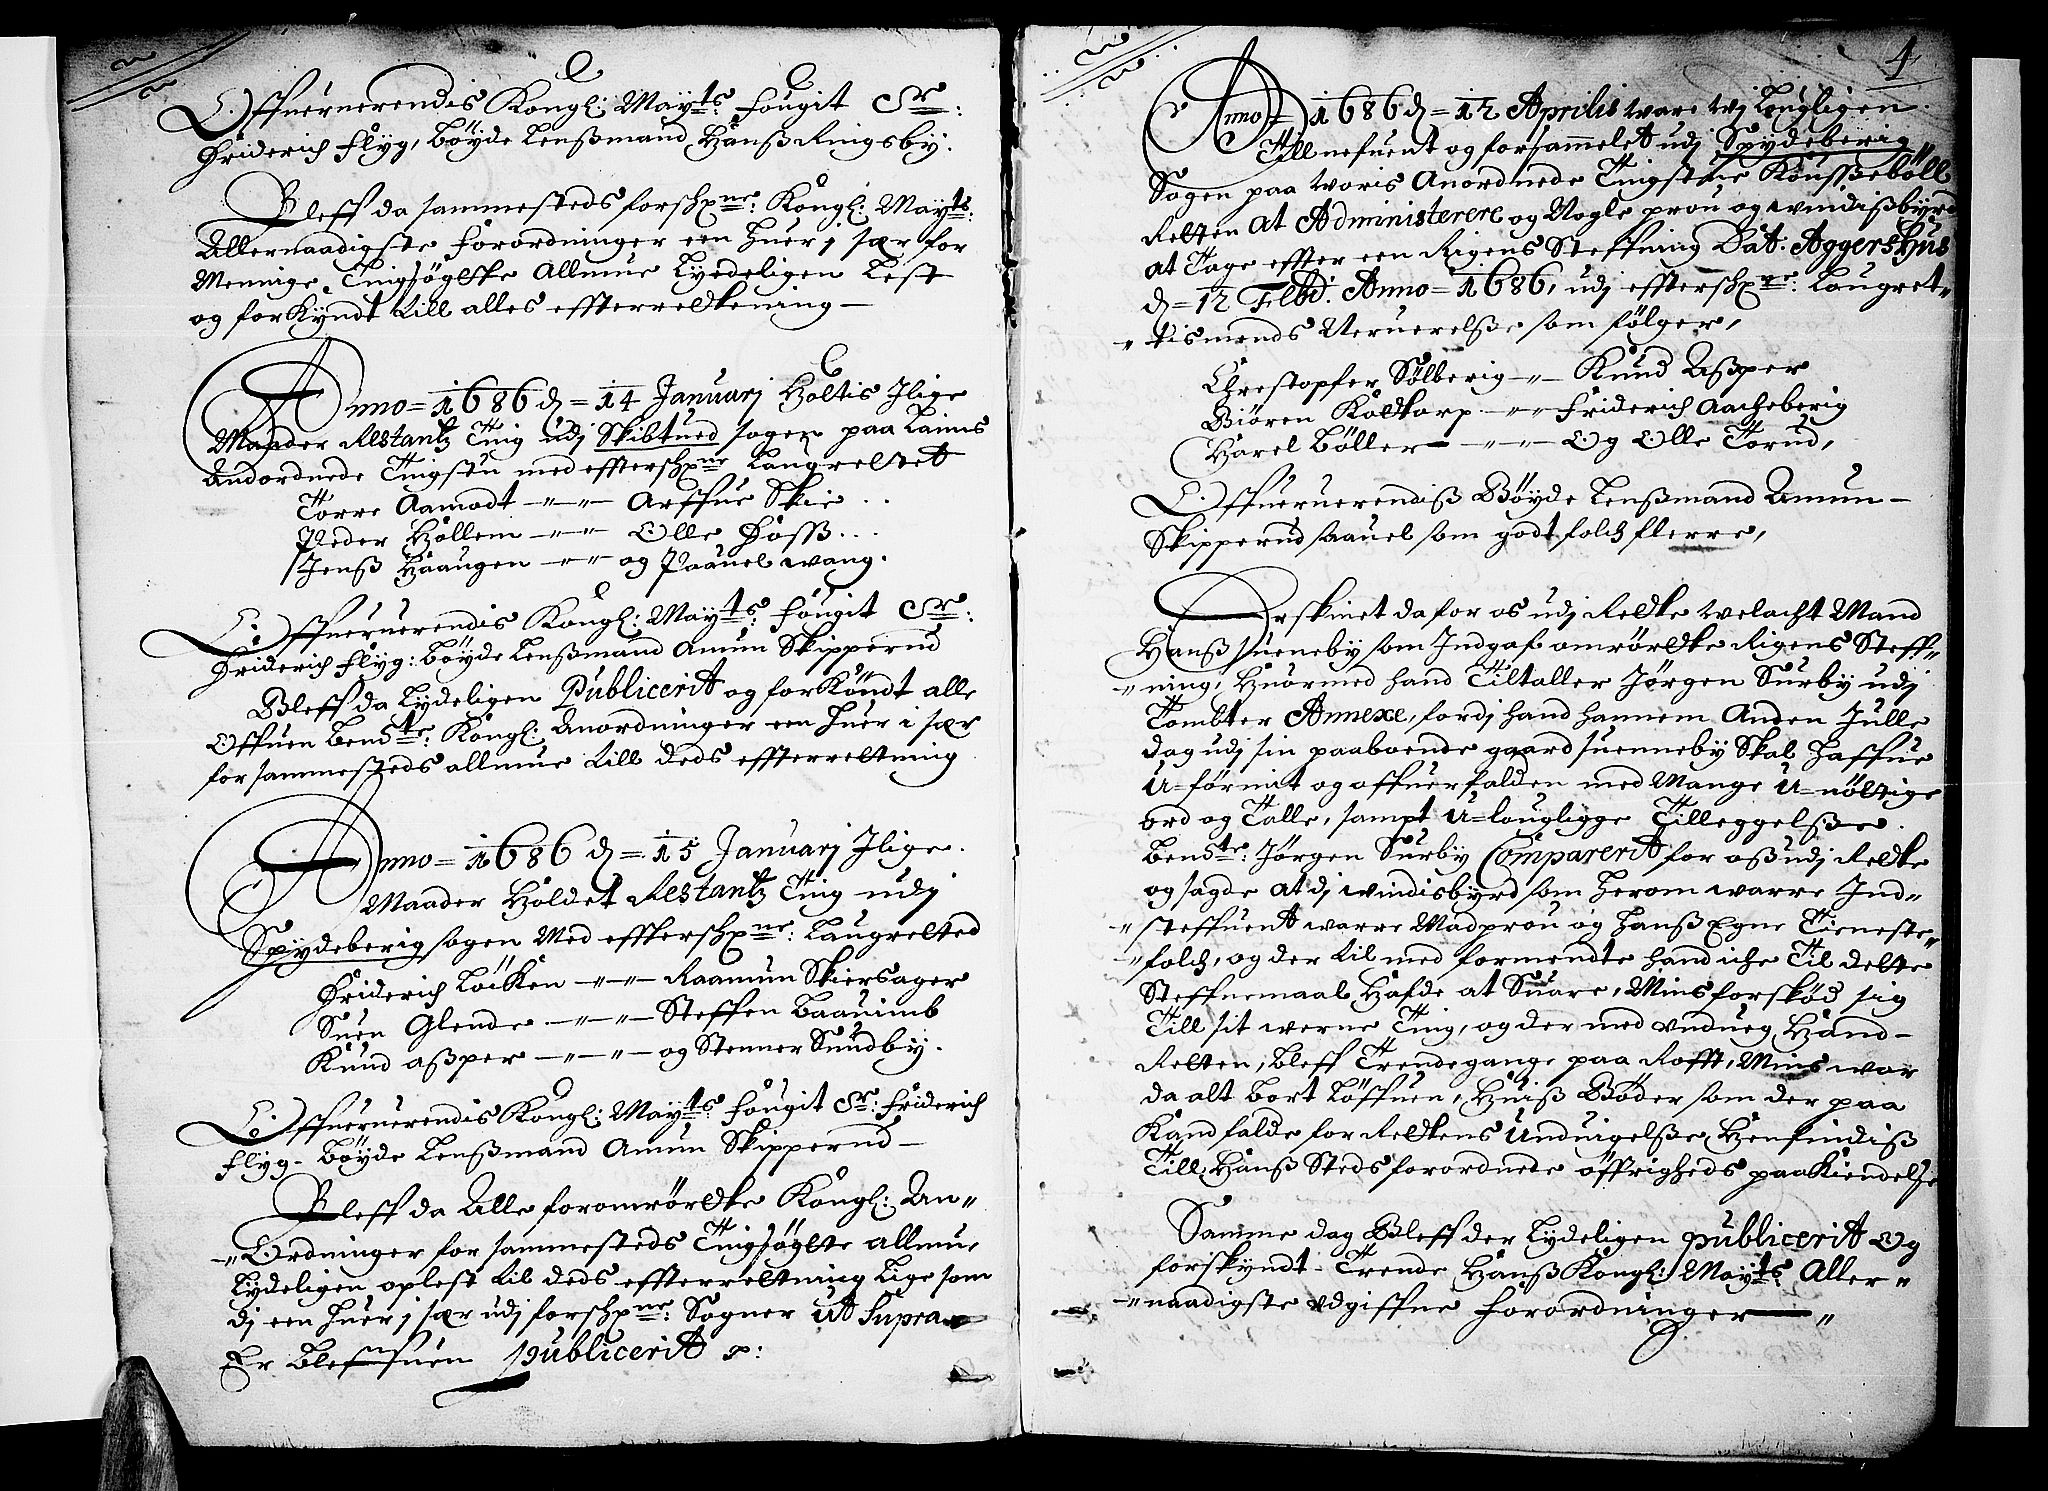 Offuerverendis Kongl: Maÿts: fougit Sr:
Friderich Flÿg, Böÿde Lenßmand Hanß Ringsbÿ.
Bleff da sammesteds forschrne: Kongl: Maÿts:
Allernaadigste forordninger een huer j sær for
Menninge Tingsögeske Allmue Lyedeligen Lest
og forkÿndt till alles efterretkening —
Anno = 1686 d = 14 Januarj Holtis Jlige
Maader Restantz Ting udj Skibtued sogen paa Laims
Andordnede Tingstu med effterschrne Laugrettet
Torre Aamodt -"-"- Arffue Skie . .
Peder Hollem -"-"- Olle Hoff . . .
Jenß Haaugen -"-"- og Paauel wang.
Offueruerendis Kongl: Maÿts: fougit Sr:
Friderich Flÿg: Böÿde Lenßmand Amun Skipperud
Bleff da Lydeligen Publicerit og forkÿndt alle
Offuen bendte: Kongl: Anordninger een huer i sær
for sammesteds allmue till deds effterrettning
Anno = 1686 d = 15 Januarj Jlige.
Maader Holdet Restantz Ting udj
Spÿdeberig sogen Med effterschrne: Laugretted
Friderich Löcken -"-"- Raamun Skiersager
Suen Glende -"-"- Steffen Baaumb
Knud aßper -"-"- og Stenner Sundbÿ.
Offueruerendis Kongl: Maÿts: fougit Sr: Friderich
Flÿg - Böÿde Lenßmand Amun Skipperud —
Bleff da Alle foromrörtke Kongl: An"
-"Ordninger for sammesteds Tingsögte allmue
Lydeligen oplest til deds effterrettning Lige som
dj een huer j sær udj forschrne: Sogner ut supra
Er bleffuen publicerit p:
4
Anno = 1686 d = 12 Aprilis ware wj Lougligen.
Till nefuent og forsammelet udj Spÿdeberig
Sogen paa woris Anordnede Tingstue Kousseböll
Retten at Administerere og Nogle prou og windißbÿrd
at Tage effter een Rigens Steffning Dat: Aggershus
d = 12 Febr. Anno = 1686, udj effterschrne: Laugret"
"tismends Neruerelße som følger,
Chrestopfer Sølberig -"- Knud Aßper
Biören Koltkorp -"-"- Friderich Aacheberig
Harel Böller -"-"- Og Olle Torud,
Offueruerendiß Böÿde Lenßmand Amun —
Skipperud saauel som godt folck flerre,
Erskinet da for os udj Retke welacht Mand
Hanß Sueneby som Indgaf omrörtke Rigens Steff"
"ning, Huormed hand Tiltaller Jörgen Surbÿ udj
Tombter Annexe, fordj hand hannem Anden Julle
dag udj sin paaboende gaard Suennebÿ Skal haffue
U=förmit og offuerfalden med Mange U=nöttige
ord og Talle, sampt U=lougligge Tilleggelße.
bendte: Jörgen Surbÿ Comparerit for oß udj Retke
og sagde at dj windisbÿrd som herom warre Ind"
"steffuent warre Madprou og Hanß Egne Tieneste"
"folch, og der til med formendte hand iche Til dette
Steffnemaal Hafde at Suare, Mins forskød sig
Till sit werne Ting, og der med undueg Hand-
Retten, bleff Trendegange paa Rofft, Mins war
da alt bort Löffuen, Huiß Böder som der paa
Kand falde for Retkens Unduigelße Henfindiß
Till Hanß Steds forordnede öffrigheds paakiendelße
Samme dag Bleff der Lydeligen publicerit Og
forskyndt - Trende Hanß Kongl: Maÿts Aller"
"naadigste udgiffne forordninger — "